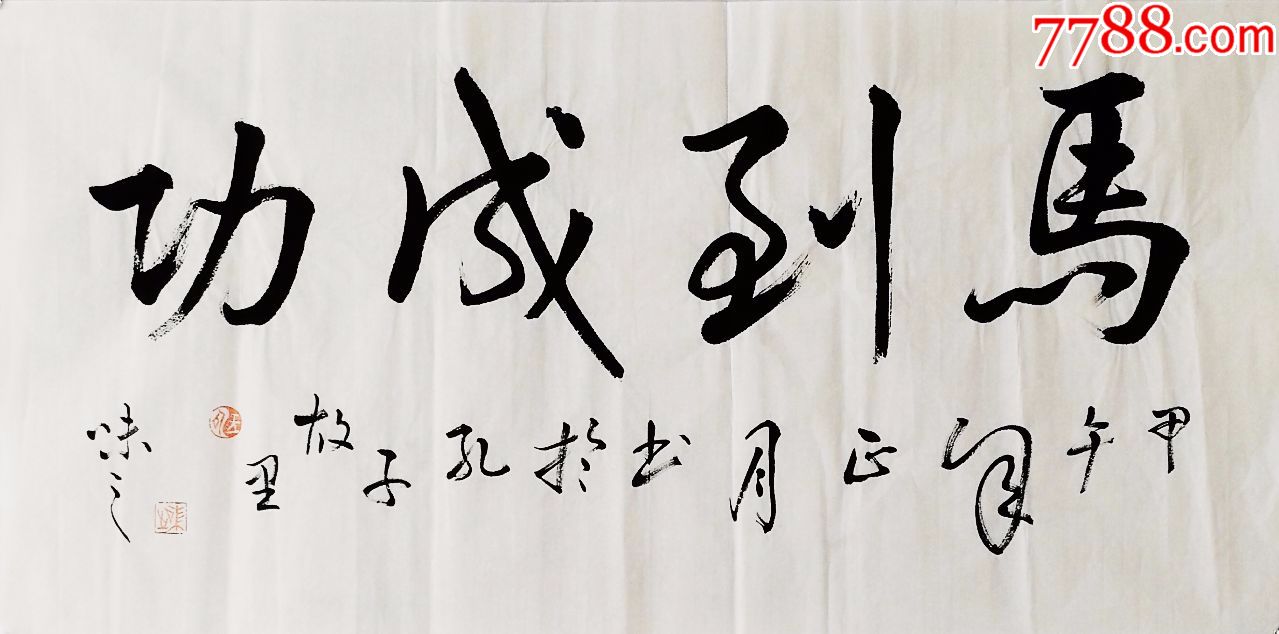 7788.com
馬到成功
甲午年正月书於孔子故里
味之